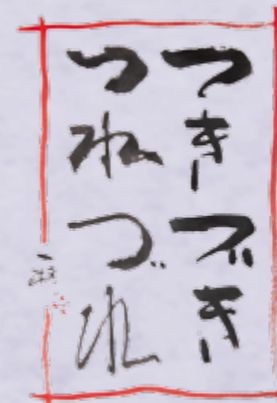 つきづき
つねづれ